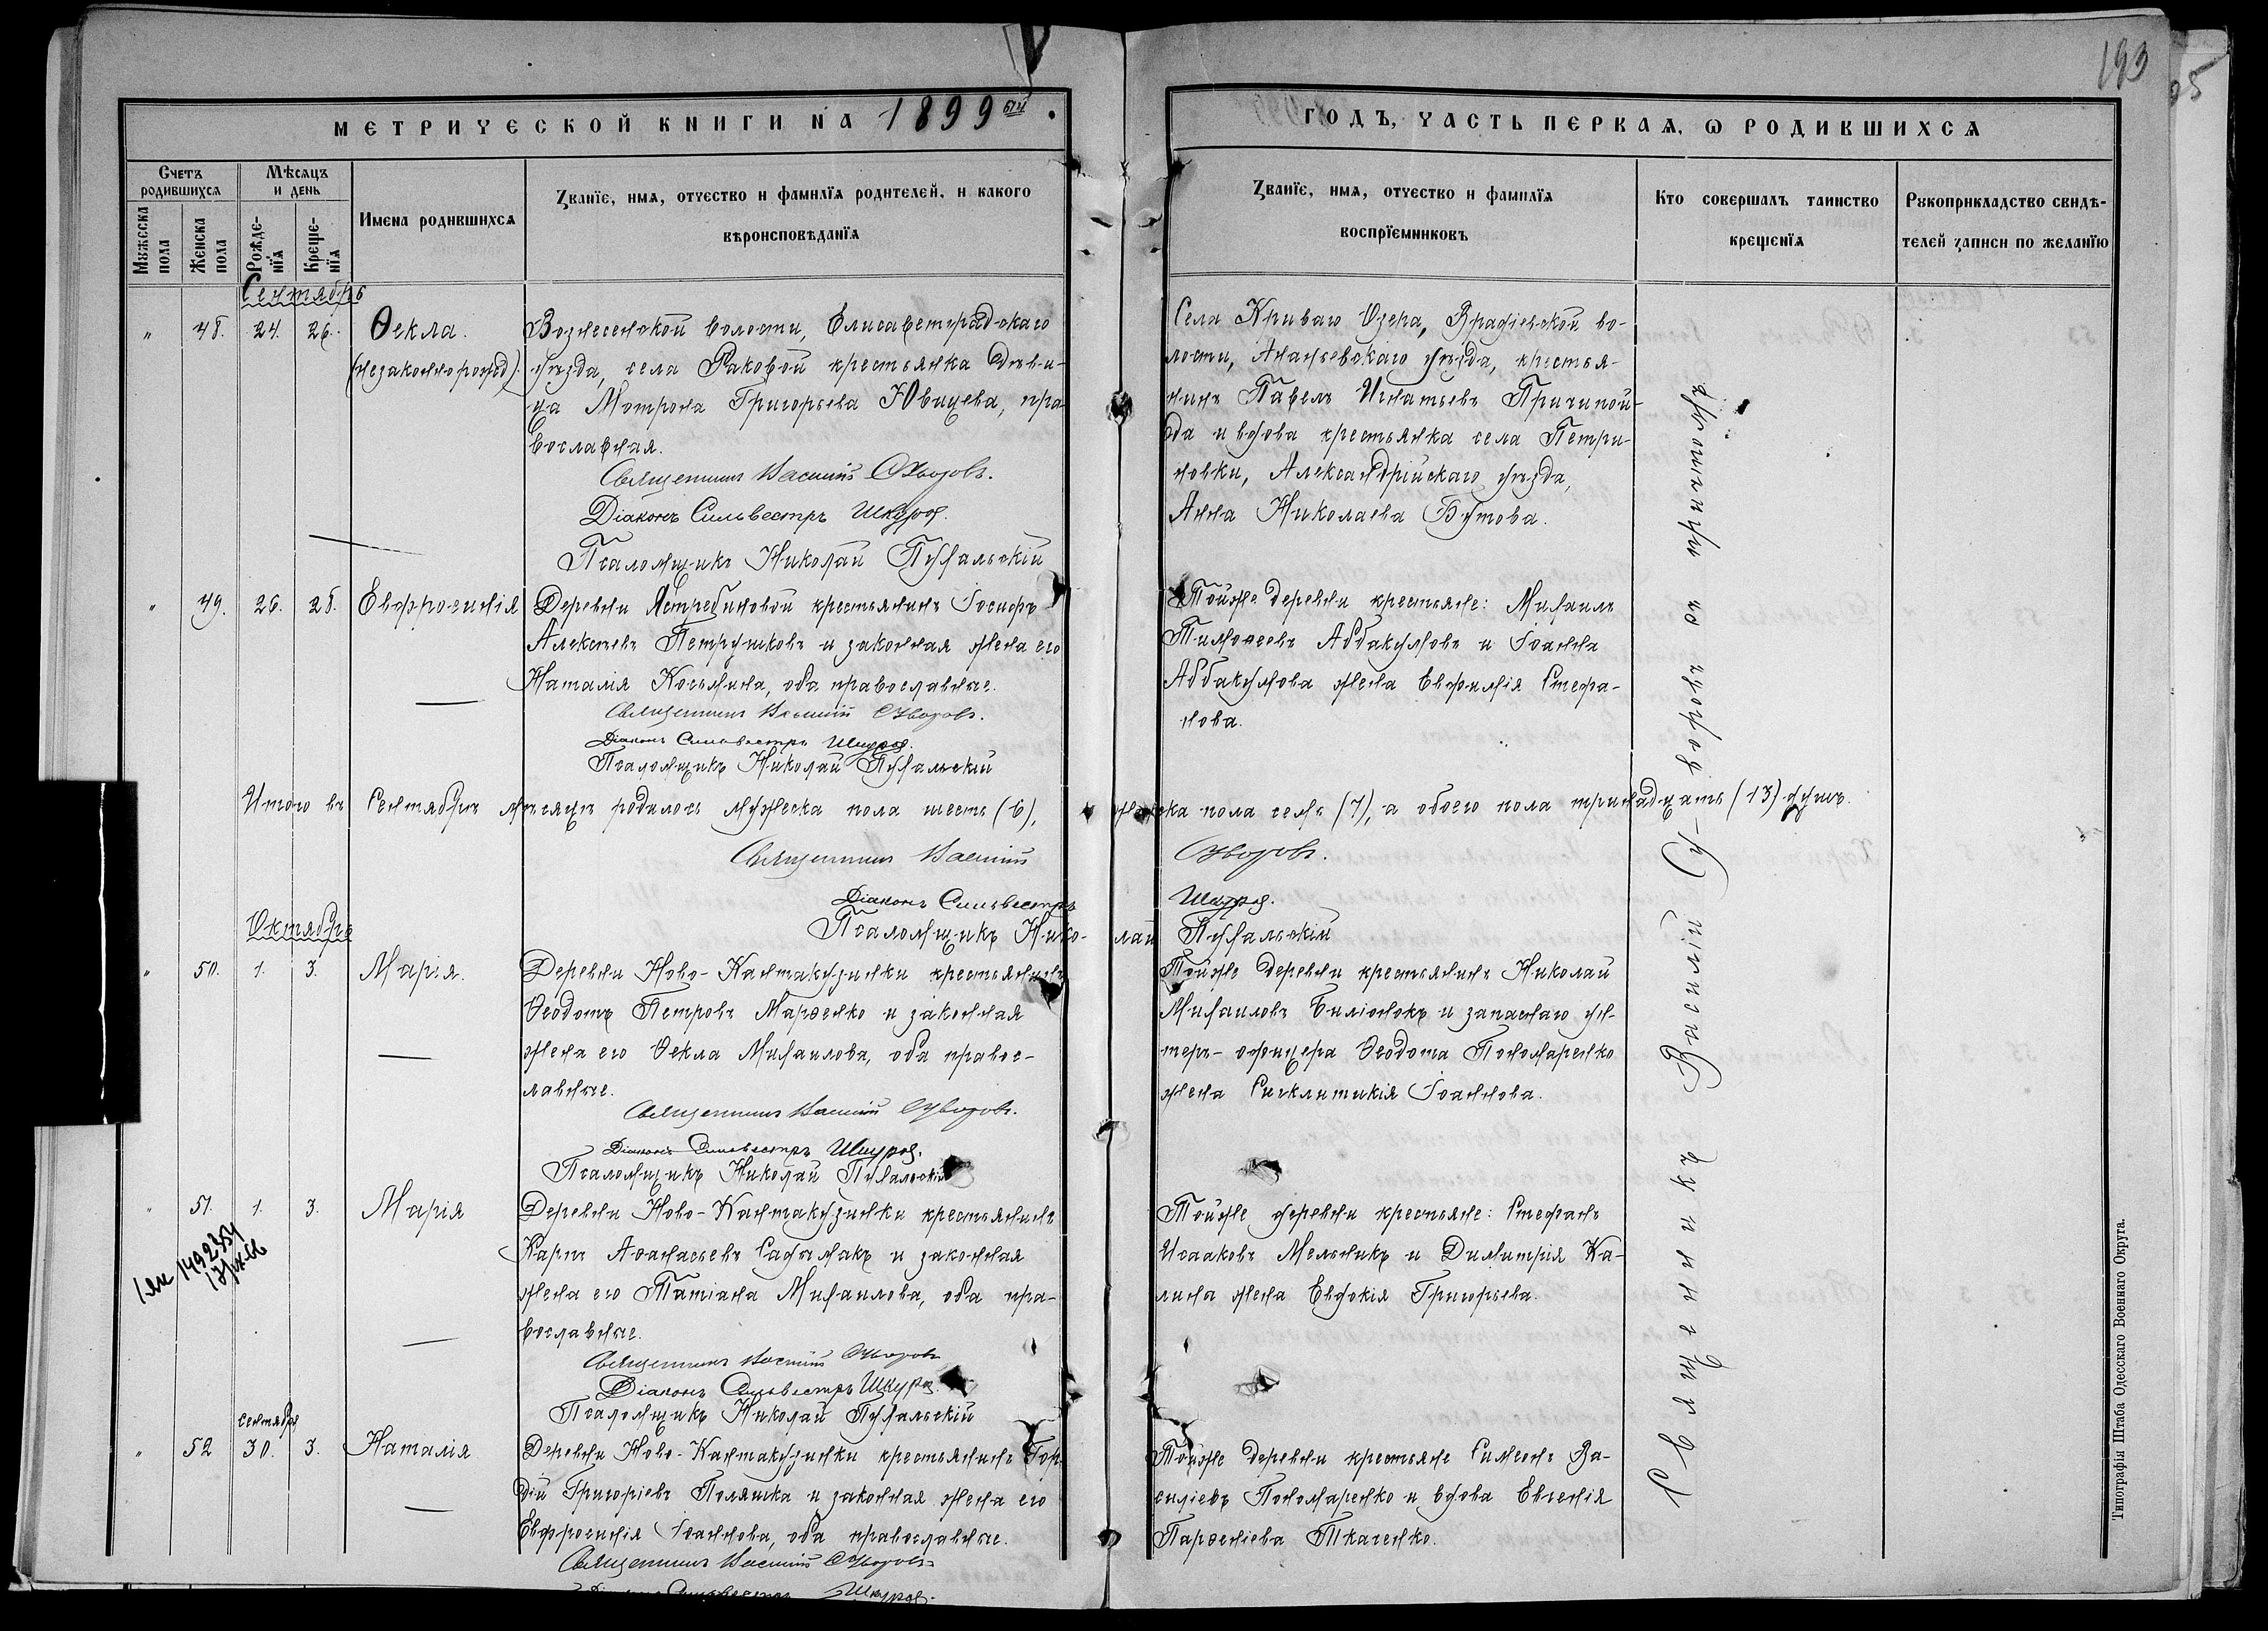 193
МЕТРИЧЕСКОЙ КНИГИ НА 1899ый
ГОДЪ, ЧАСТЬ ПЕРВАЯ, Ѡ РОДИВШИХСЯ
Счетъ родившихся
Мѣсяцъ и день
Имена родившихся
Званіе, имя, отчество и фамилія родителей, и какого
вѣроисповѣданія
Мужеска пола
Женска пола
Рожденія
Крещенія
Званіе, имя, отчество и фамилія
воспріемниковъ
Кто совершалъ таинство
крещенія
Рукоприкладство свидѣ-
телей записи по желанію
Сентябрь
" 48. 24. 26. Ѳекла.
(незаконнорожд)
Вознесенской волости, Елисаветградскаго
уѣзда, села Раковой крестьянка дѣви-
ца Мотрона Григорьева Ювщева, пра-
вославная.
Священникъ Василій Суворовъ.
Діаконъ Сильвестръ
Псаломщикъ Николай
Села Криваго Озера, Врадіевской во-
лости, Ананьевскаго уѣзда, крестья-
нинъ Павелъ Игнатьевъ Причипой-
да и вдова крестьянка села Петри-
ковки, Александрійскаго уѣзда,
Анна Николаева Бутова.
" 49. 26. 28. Евфросинія
Деревни Ястребиновой крестьянинъ Іосифъ
Алексѣевъ Петрушковъ и законная жена его
Наталія Косьмина, оба православные.
Священникъ Василій Суворовъ.
Діаконъ Сильвестръ
Псаломщикъ Николай
Тойже деревни крестьяне: Михаилъ
Тимоѳеевъ Аббакумовъ и Іоанна
Аббакумова жена Евфимія Стефа-
нова.
Итого въ Сентябрѣ мѣсяцѣ родилось мужеска пола шесть (6), женска пола семь (7), а обоего пола тринадцать (13) душъ.
Священникъ Василій Суворовъ.
Діаконъ Сильвестръ
Псаломщикъ Николай
Октябрь
" 50. 1. 3. Марія.
Деревни Ново-Кантакузинки крестьянинъ
Ѳеодотъ Петровъ Марженко и законная
жена его Ѳекла Михаилова, оба правос-
лавные.
Священникъ Василій Суворовъ.
Діаконъ Сильвестръ
Псаломщикъ Николай
Тойже деревни крестьянинъ Николай
Михаиловъ Биліонокъ и запаснаго ун-
теръ-офицера Ѳеодота Пономаренко
жена Сигклитикія Іоаннова.
" 51. 1. 3. Марія
Деревни Ново-Кантакузинки крестьянинъ
Карпъ Аѳанасьевъ Садымакъ и законная
жена его Татіана Михаилова, оба пра-
вославные.
Священникъ Василій Суворовъ
Діаконъ Сильвестръ
Псаломщикъ Николай
Тойже деревни крестьяне: Стефанъ
Исааковъ Мельникъ и Димитрія Ка-
лина жена Евдокія Григорьева.
сентября
" 52 30. 3. Наталія
Деревни Ново-Кантакузинки крестьянинъ Гор-
дій Григоріевъ Полящка и законная жена его
Евфросинія Іоаннова, оба православные.
Священникъ Василій Суворовъ
Діаконъ Сильвестръ
Тойже деревни крестьяне Симеонъ Ва-
силіевъ Пономаренко и вдова Евгенія
Парѳеніева Ткаченко.
Священникъ Василій Суворовъ съ причтомъ.
Типографія Штаба Одесскаго Военнаго Округа.